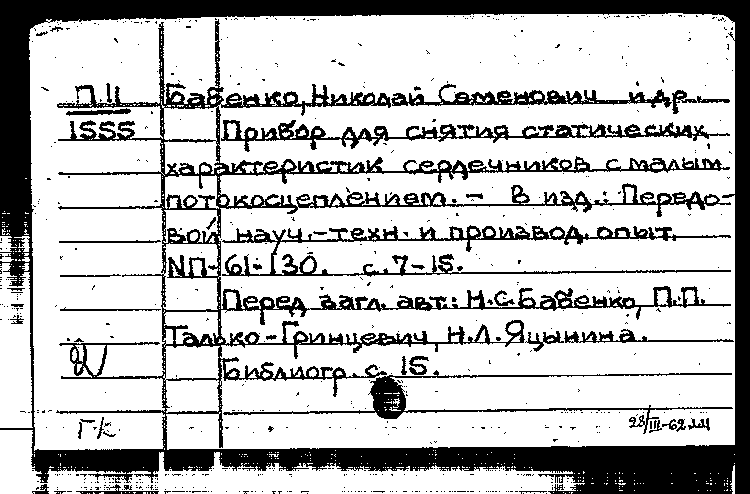 П.II Бабенко, Николай Семенович и др.
1555 Прибор для снятия статических
характеристик сердечников с малым
потокосцеплением. – В изд.: Передо-
вой науч.-техн. и производ. опыт.
№П-61-130. с.7-15.
Перед загл. авт.: Н.С.Бабенко, П.П.
Талько-Гринцевич, Н.Л.Яцынина.
Библиогр. с. 15.
Г-к
28/III-62